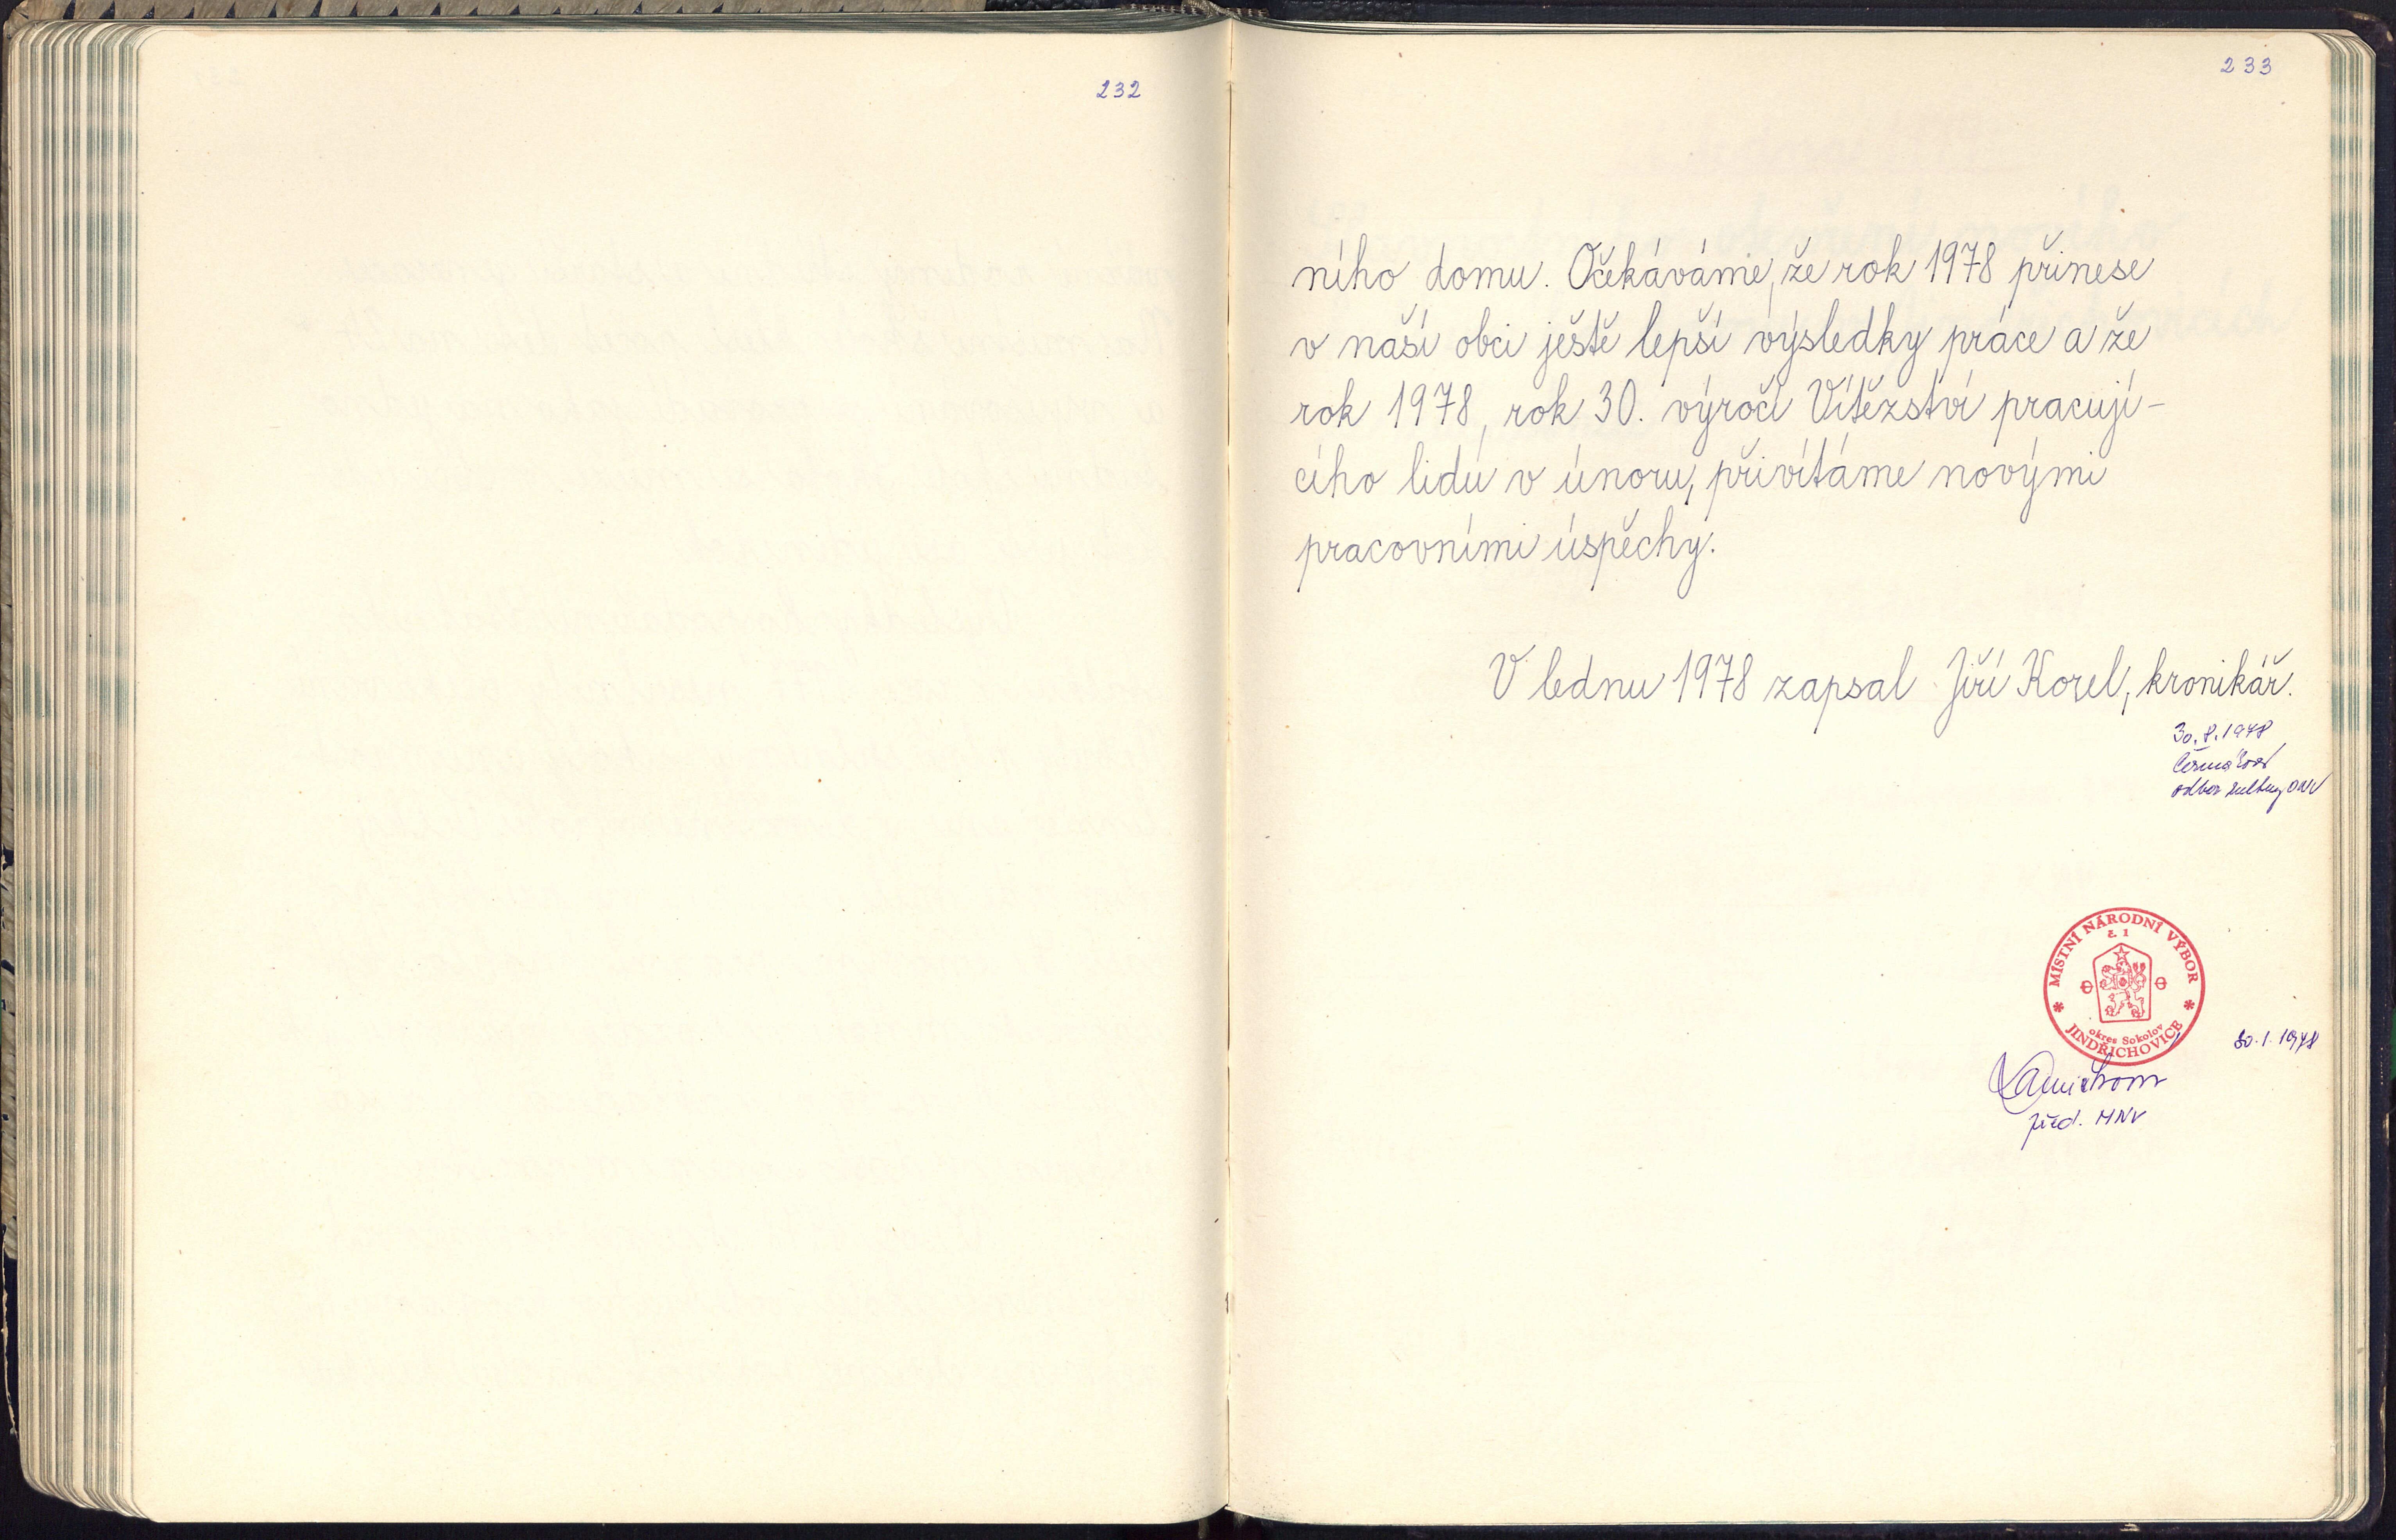 232
233
ního domu. Očekáváme, že rok 1978 přinese
v naší obci ještě lepší výsledky práce a že
rok 1978, rok 30. výročí Vítězství pracují-
cího lidu v únoru, přivítáme novými
pracovními úspěchy.
V lednu 1978 zapsal Jiří Korel, kronikář.
30.8.1978
odbor kultury ONV
MÍSTNÍ NÁRODNÍ VÝBOR
č. 1
okres Sokolov
JINDŘICHOVICE
30.1.1978
před. MNV